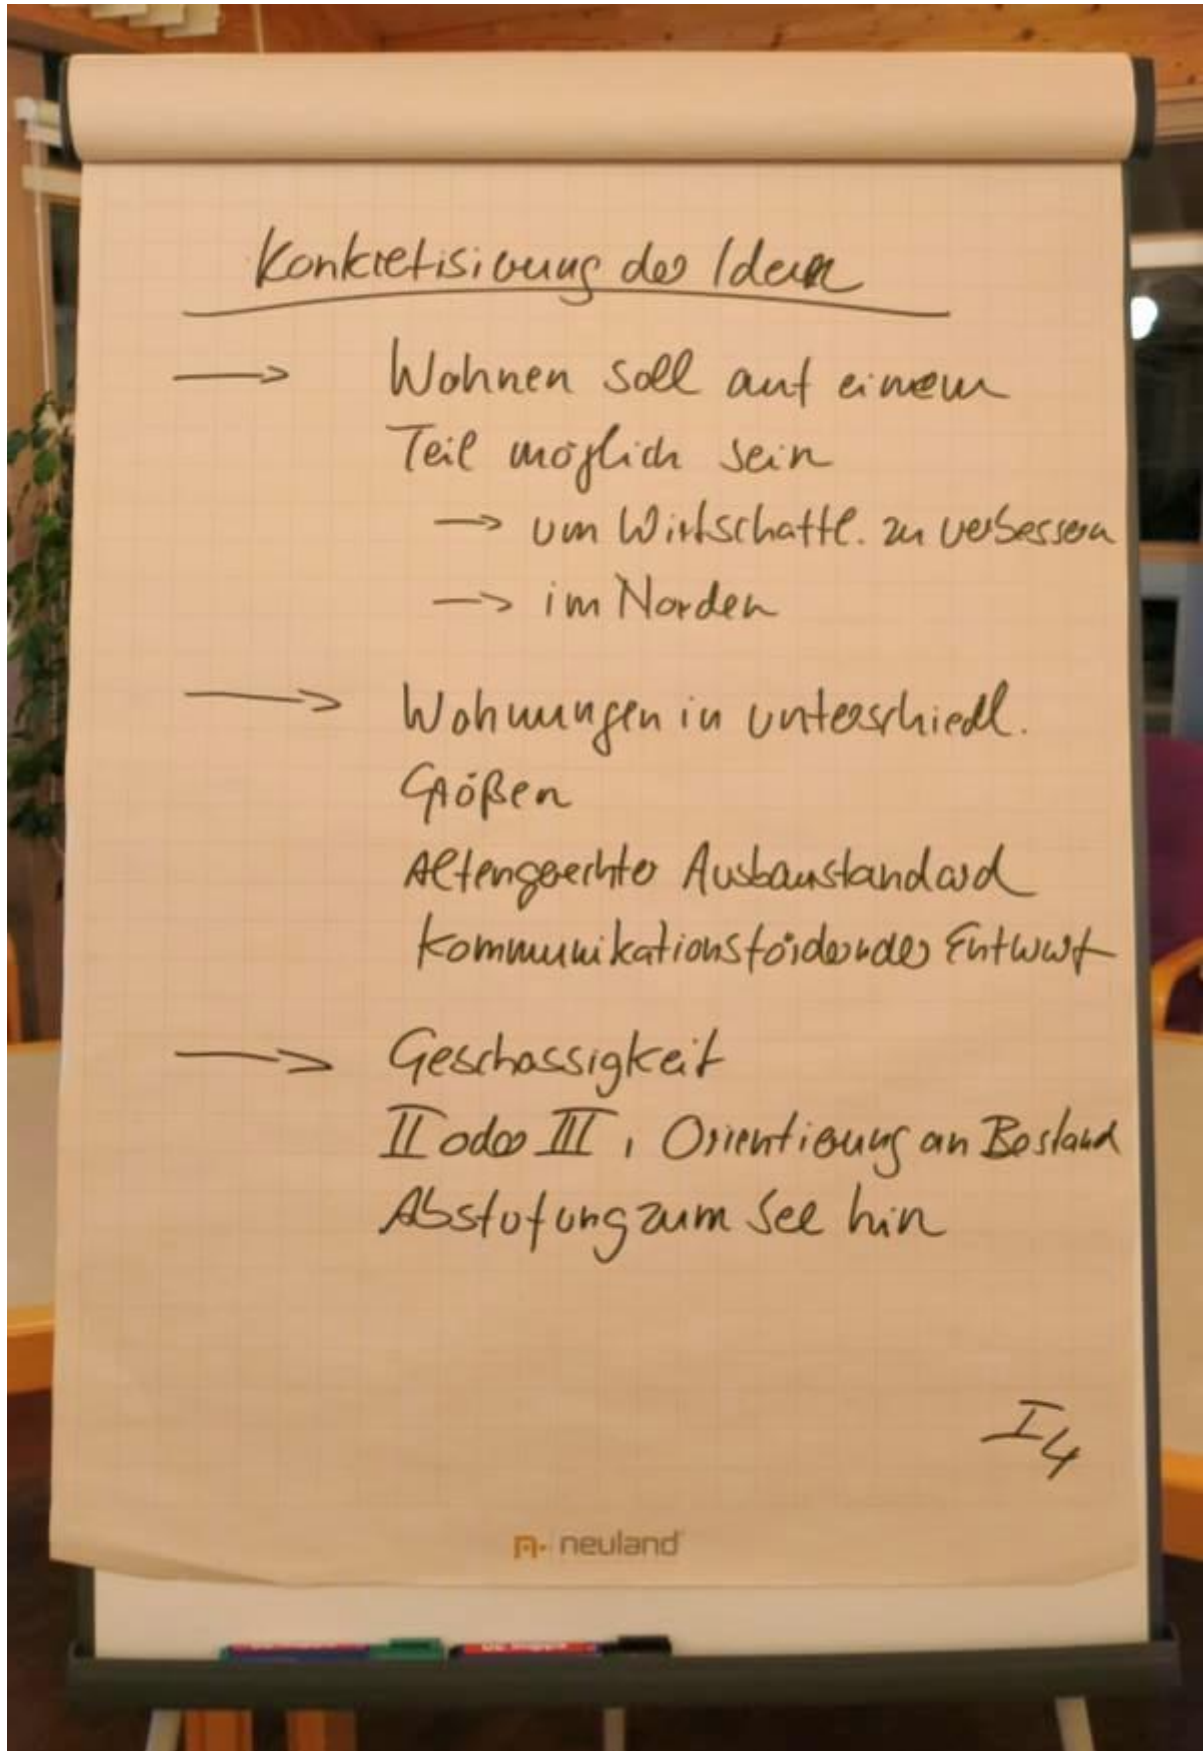 Konkretisierung der Ideen
→ Wohnen soll auf einem
Teil möglich sein
→ um Wirtschaftl. zu verbessern
→ im Norden
→ Wohnungen in unterschiedl.
Größen
Altengerechter Ausbaustandard
kommunikationsfördernder Entwurf
→ Geschossigkeit
II oder III, Orientierung an Bestand
Abstufung zum See hin
I4
neuland